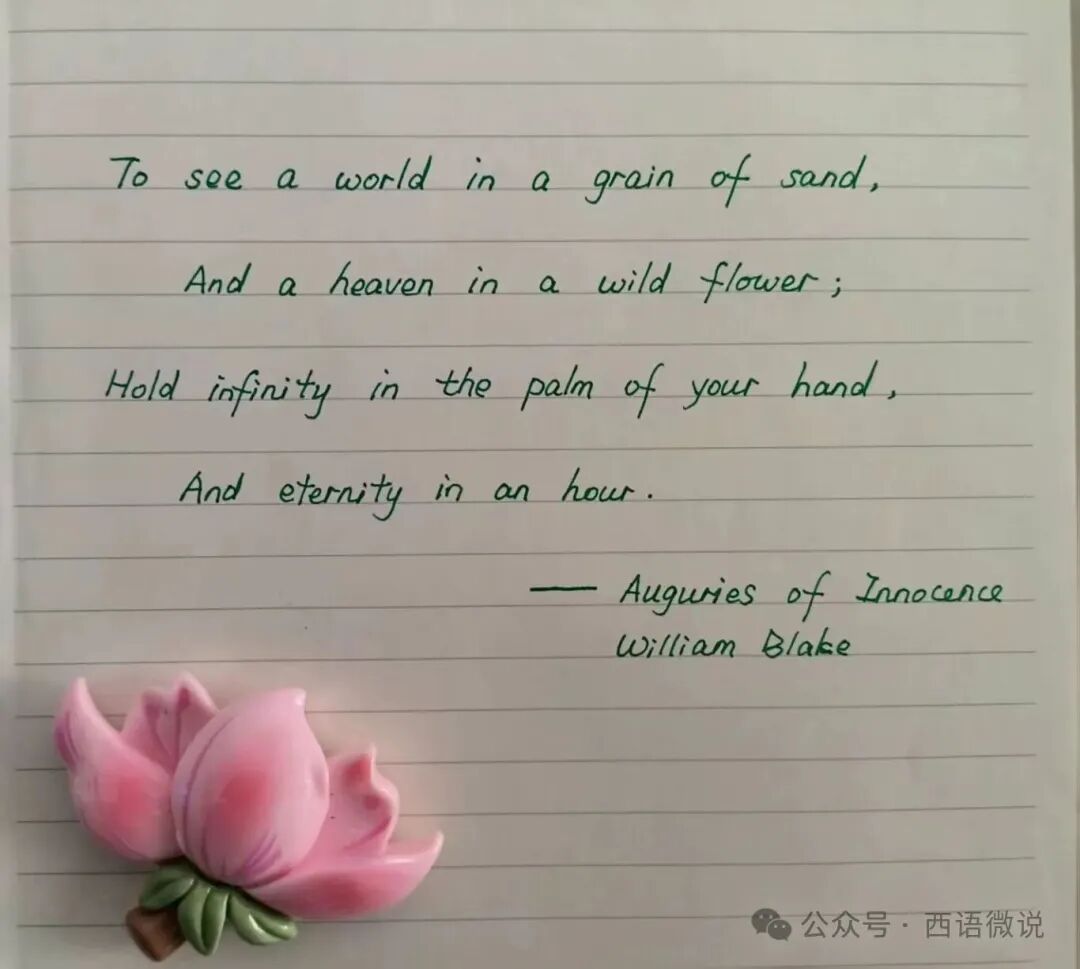 To see a world in a grain of sand,
And a heaven in a wild flower;
Hold infinity in the palm of your hand,
And eternity in an hour.
— Auguries of Innocence
William Blake
公众号·西语微说